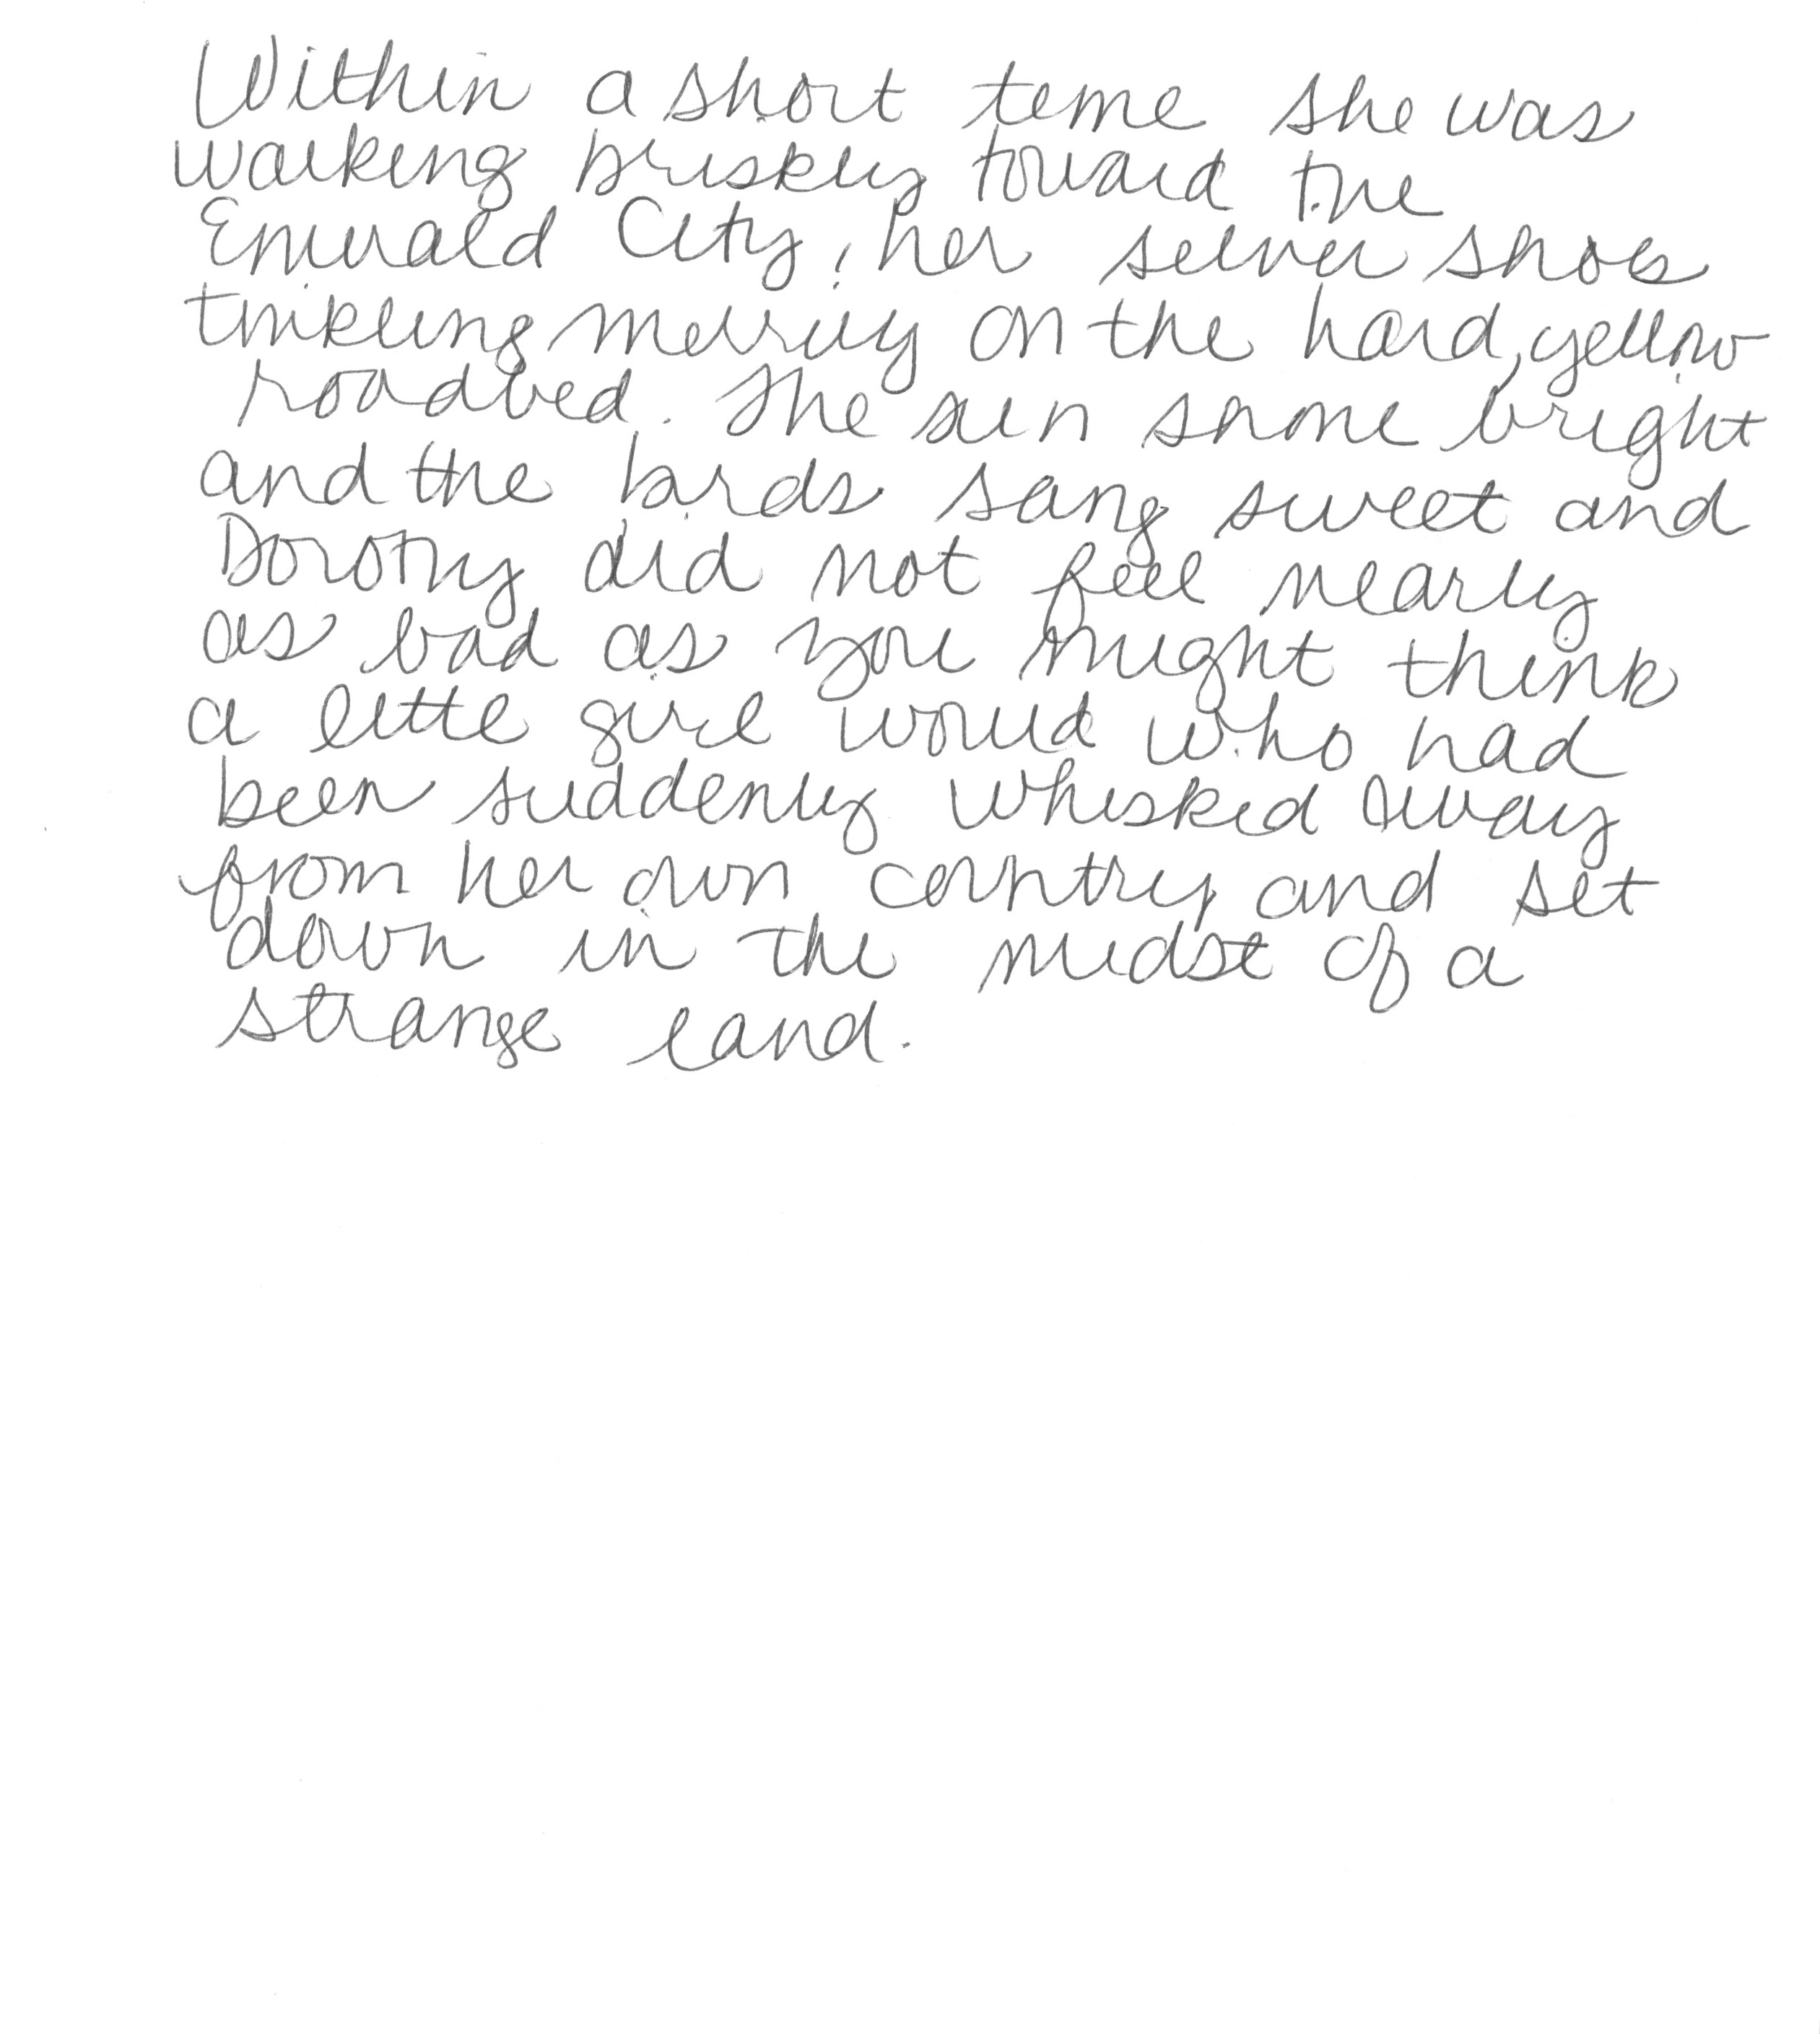 Within a short time she was
walking briskly toward the
Emerald City, her silver shoes
tinkling merrily on the hard, yellow
roadbed. The sun shone bright
and the birds sang sweet and
Dorothy did not feel nearly
as bad as you might think
a little girl would who had
been suddenly whisked away
from her own country and set
down in the midst of a
strange land.